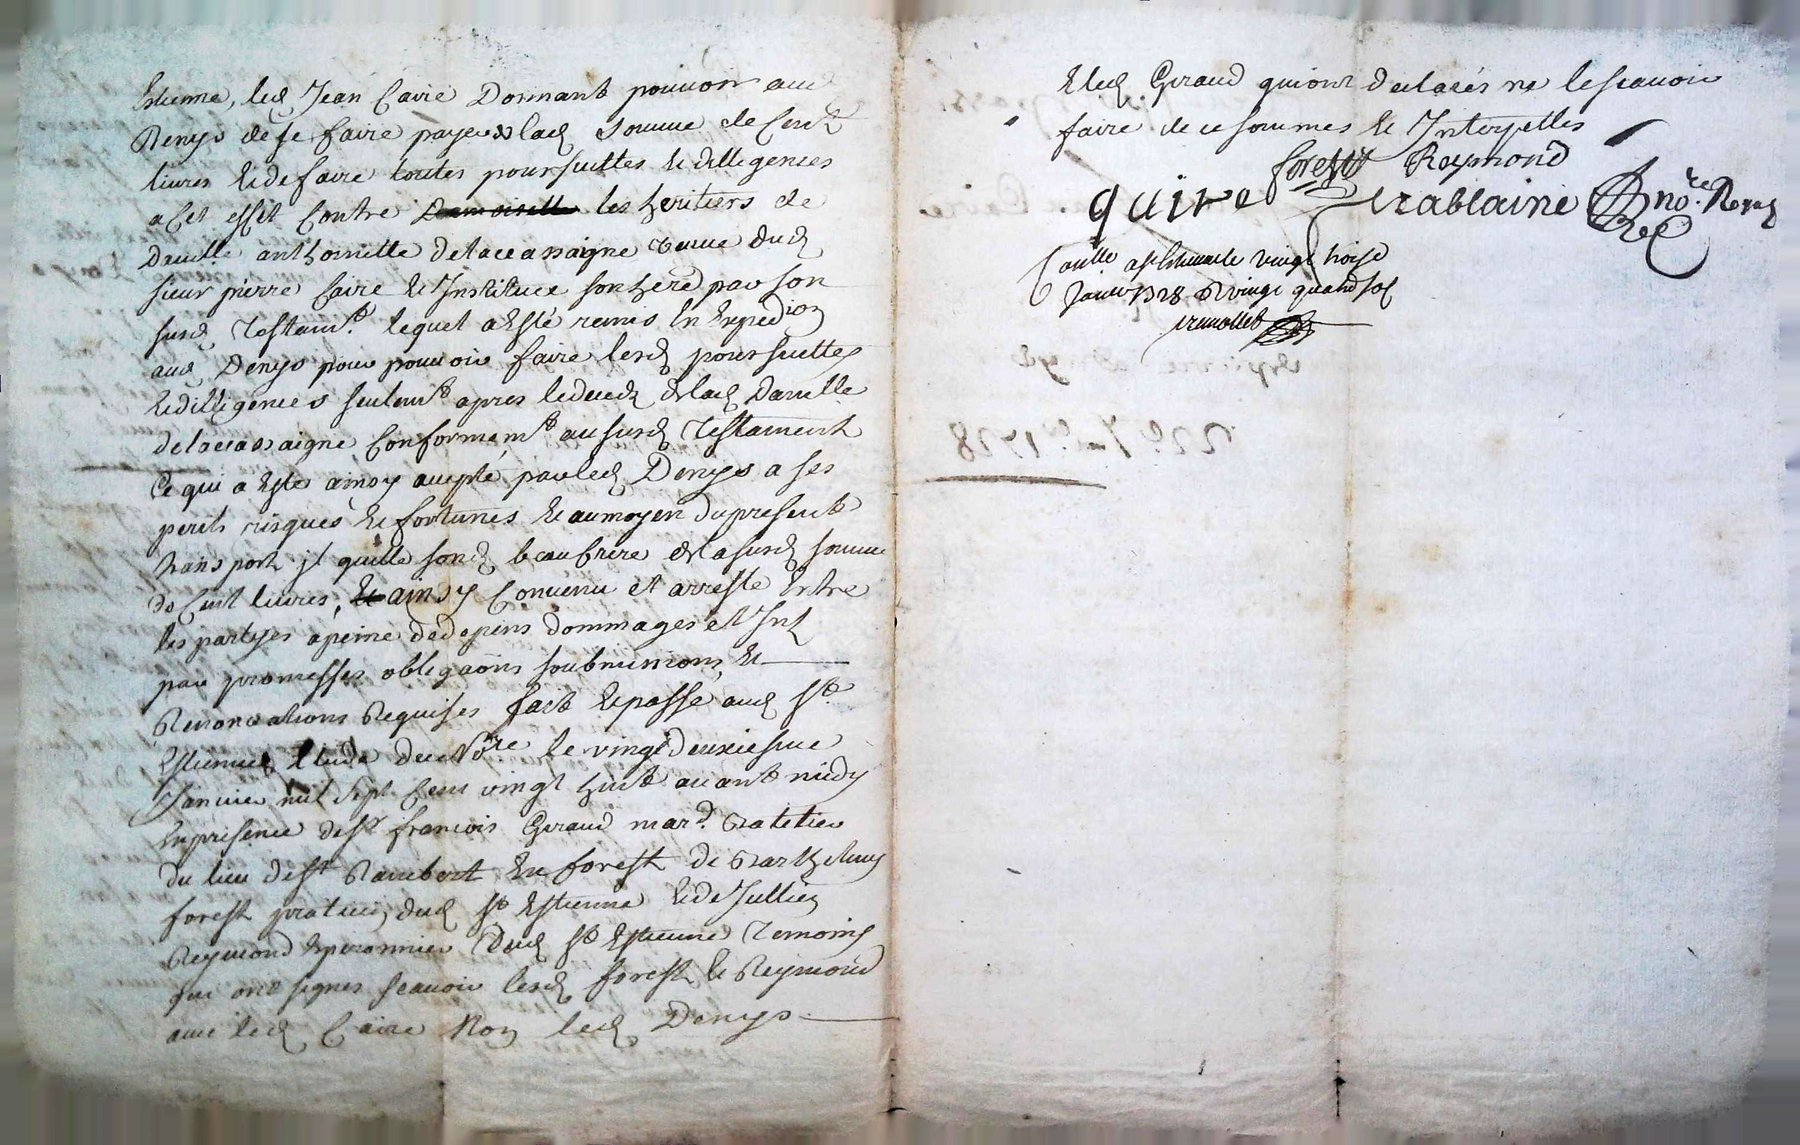 Estienne, led Jean Cavie Donnant pouvoir aud
Denys de se faire payer de lad somme de Cent
livres Et de faire toutes poursuittes Et dilligences
a Cet effet Contre les heritiers de
Dam.lle anthoinette Delaccassaigne veuve dud
sieur pierre Caire Et Instituée son hered par son
susd Testam.t lequel a Esté remis En Expedion
aud Denys pour pouvoir faire lesd poursuittes
Et dilligences seulem.t apres le deced de lad Damlle
delaccassaigne Conformem.t au susd Testament
Ce qui a Esté ainsy accepté par led Denys a ses
perils risques Et fortunes Et au moyen du present
transport jl quitte sond beaufrere de la susd somme
de Cent livres, ainsy Convenu et arresté Entre
les partyes a peine de depens dommages et Int
par promesses obligaons soubmissions Et
Renonciations Requises fait Et passé aud St
Estienne Etude du No.re le vingt deuxiesme
Janvier mil sept Cens vingt huit avant midy
En presence de sr francois Geraud mar.d
du lieu de st Rambert En forest de Barthelemy
forest praticien dud st Estienne Et de Jullien
Reymond Esperonnier dud st Estienne Temoins
qui ont signes scavoir lesd forest Et Reymond
avec led Caire Non led Denys
Et led Geraud qui ont declarés ne le scavoir
faire de ce sommes Et Interpelles
forest Reymond
quire Trablaine no.re Royal
Con.lle a st Estienne le vingt troise
Janvr 1728 R vingt quatre sol